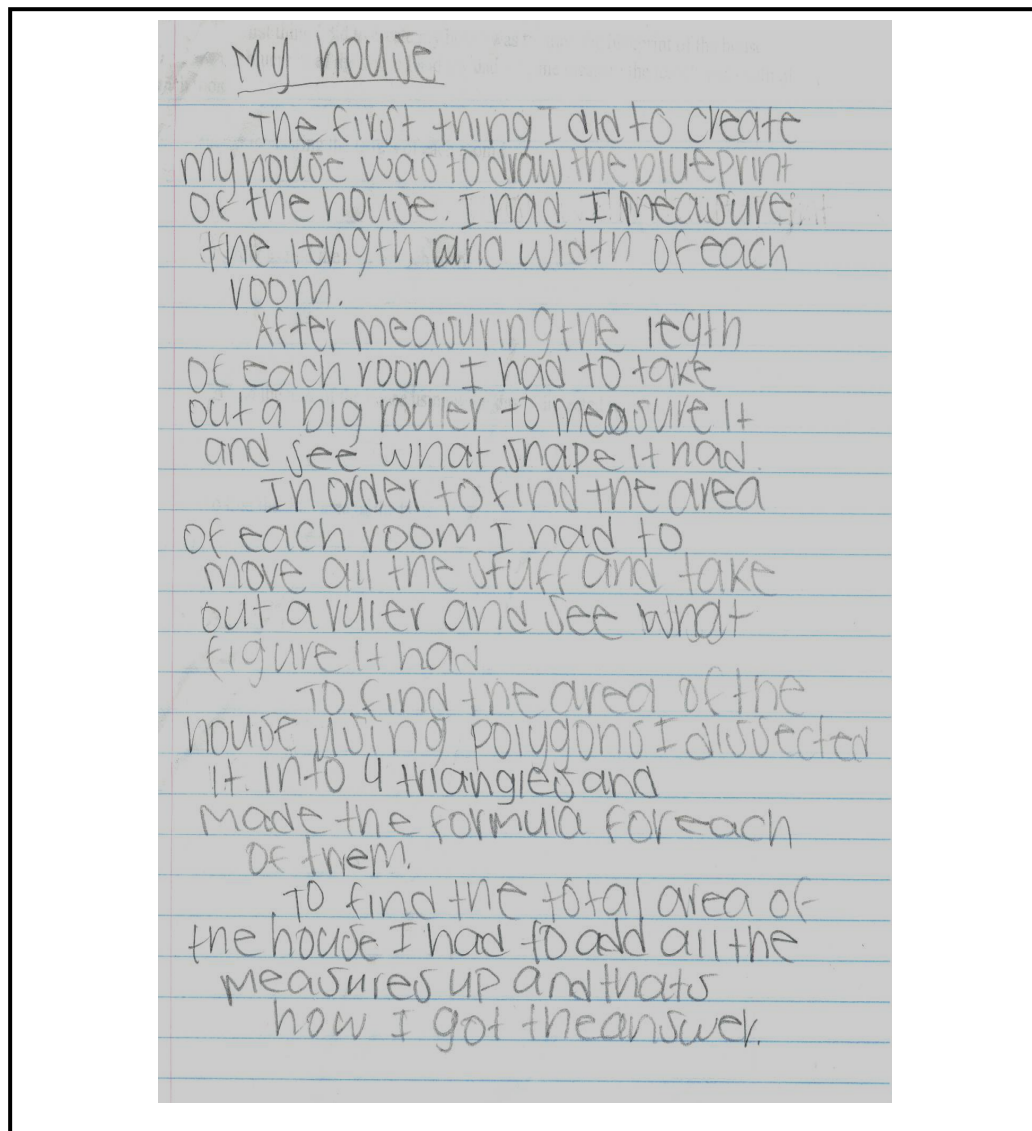 My house
The first thing I did to create
my house was to draw the blueprint
of the house. I had I measure.
the length and width of each
room.
After measuring the legth
of each room I had to take
out a big rouler to measure it
and see what shape it had.
In order to find the area
of each room I had to
move all the stuff and take
out a ruler and see what
figure it had
To find the area of the
house using polygons I dissected
it. into 4 triangles and
made the formula for each
of them.
To find the total area of
the house I had to add all the
measures up and thats
how I got the answer.